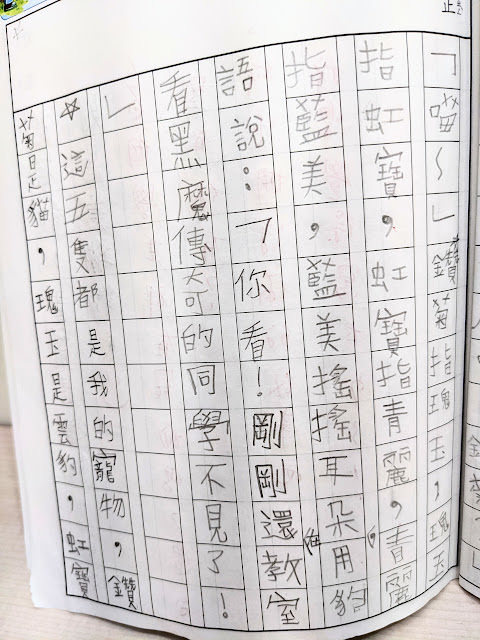 「喵～」鑽菊指瑰玉，瑰玉
指虹寶，虹寶指青麗，青麗
指藍美，藍美搖搖耳朵用豹
語說：「你看！剛剛還在教室
看黑魔傳奇的同學不見了！
」
☆這五隻都是我的寵物，鑽
菊是貓，瑰玉是雲豹，虹寶